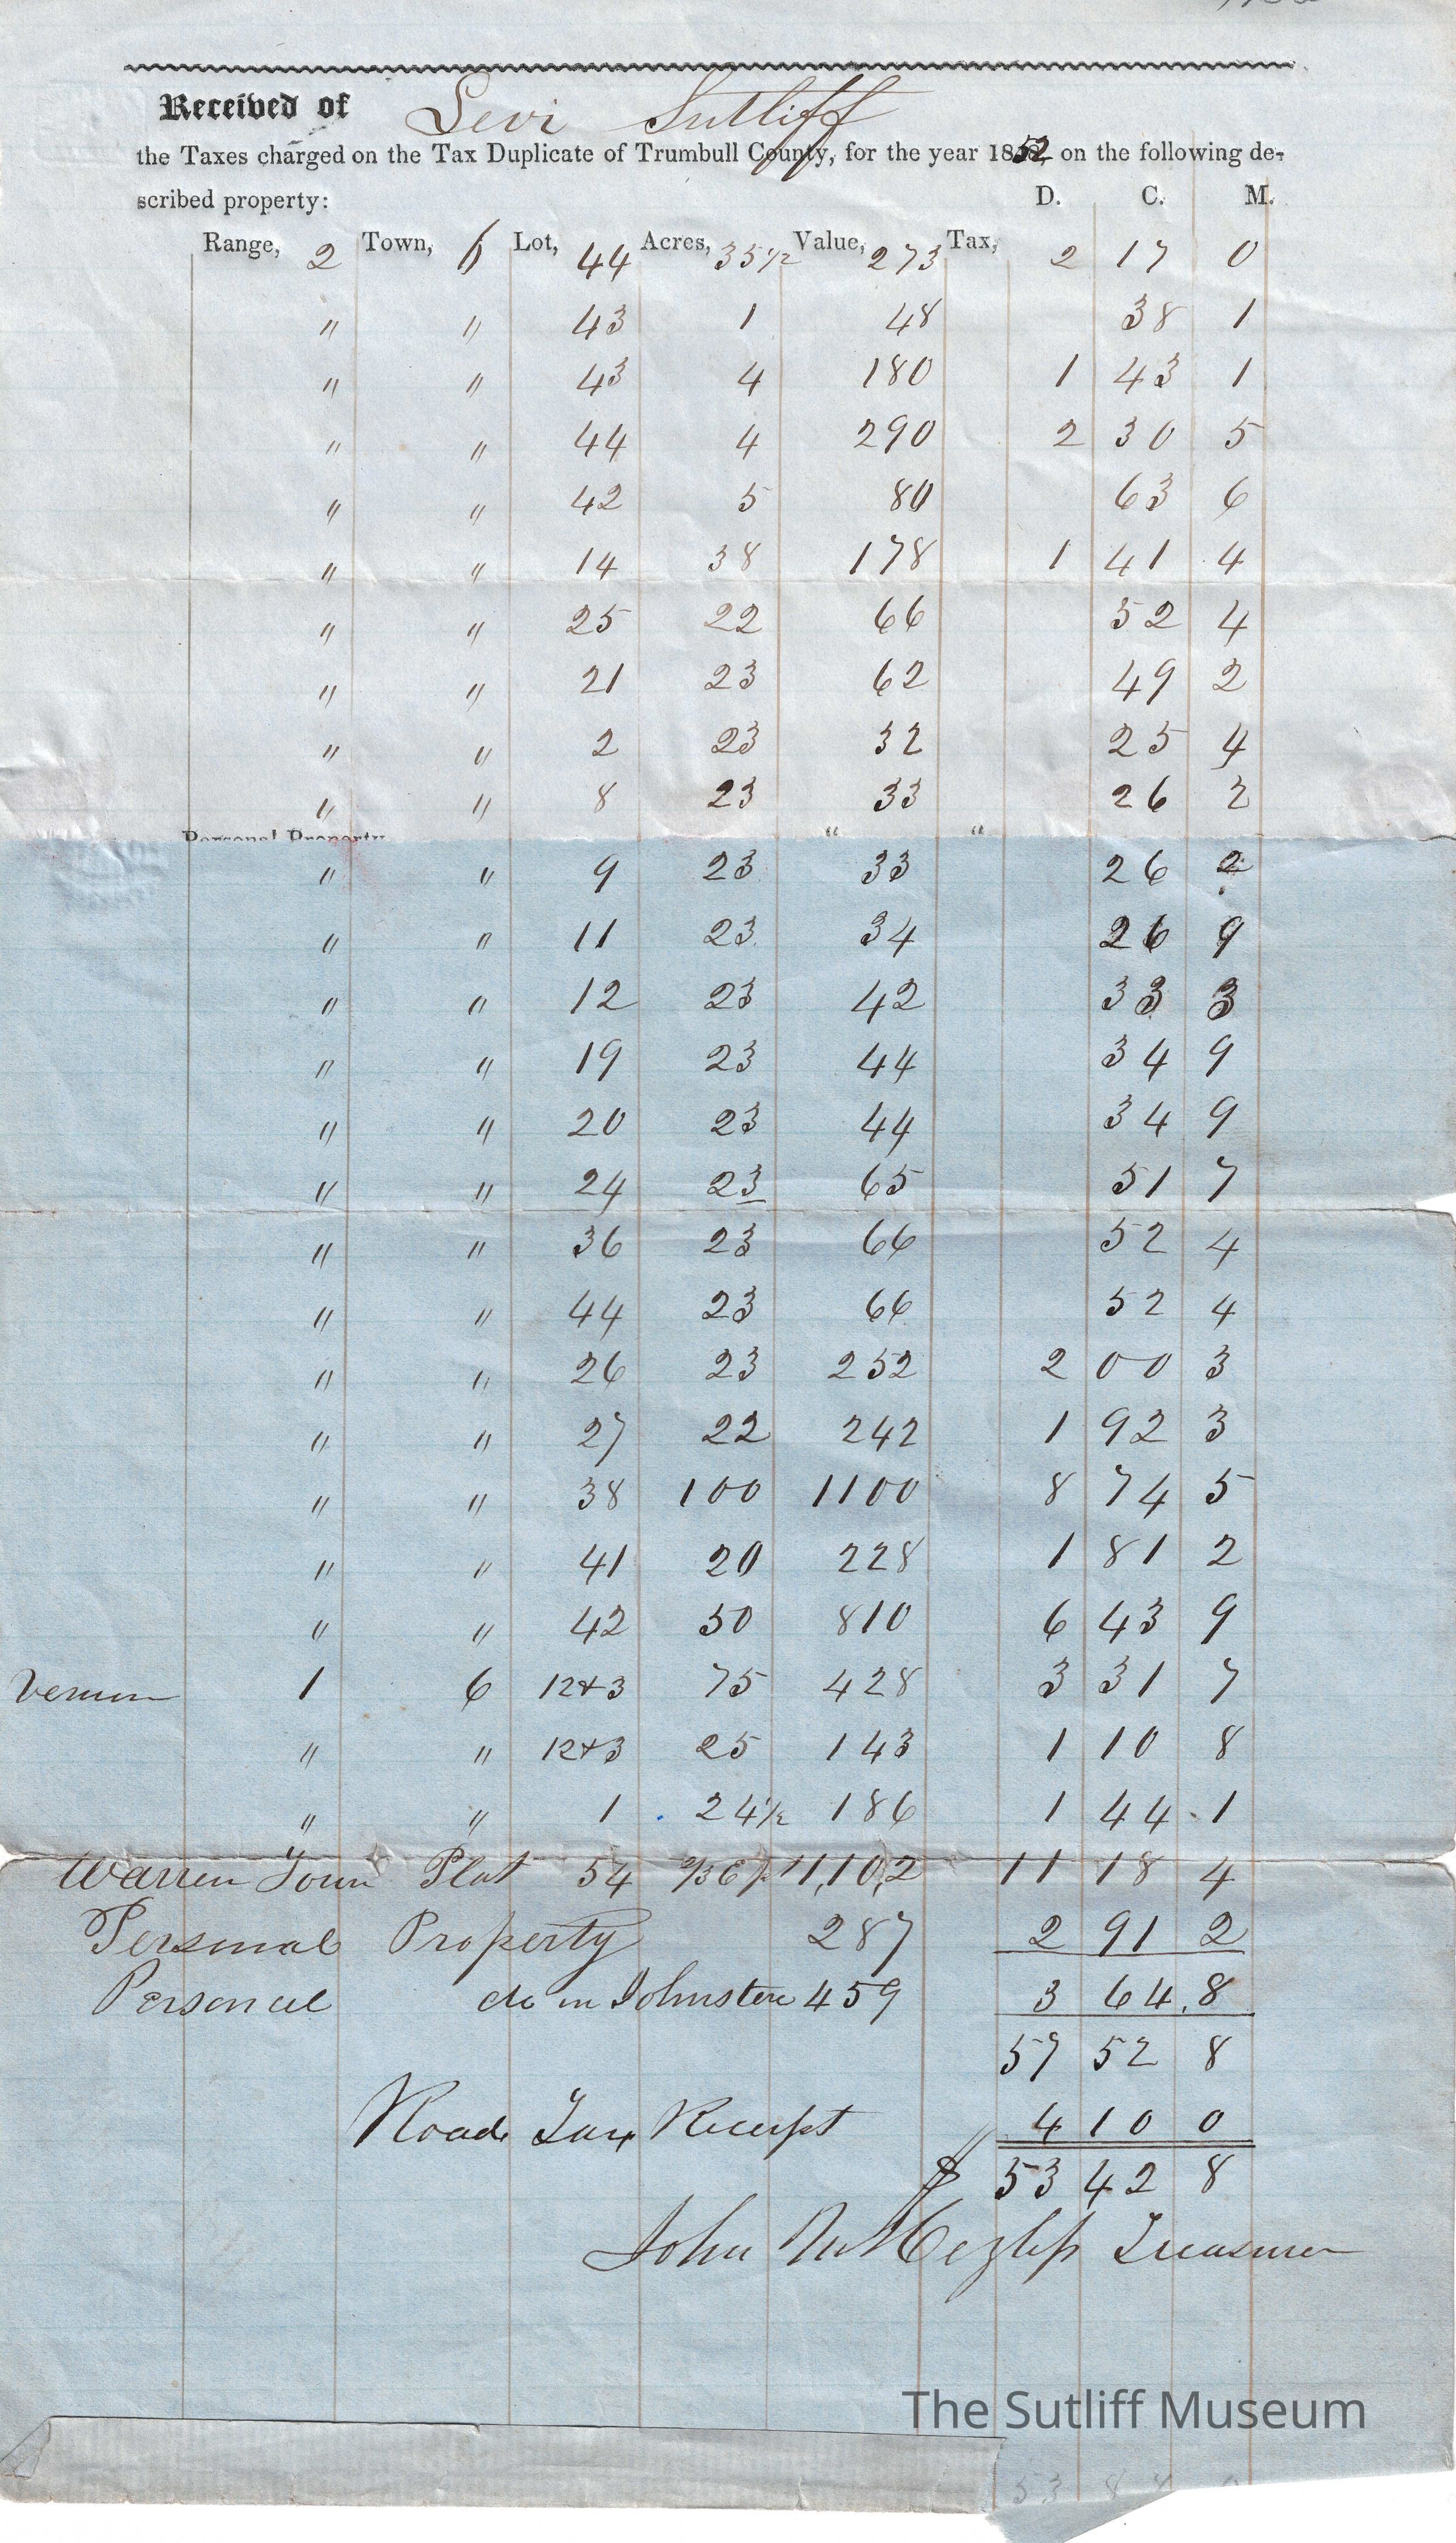 Received of Levi Sutliff
the Taxes charged on the Tax Duplicate of Trumbull County, for the year 1852, on the following de-
scribed property: D. C. M.
Range, 2 Town, 6 Lot, 44 Acres, 35 1/2 Value, 273 Tax, 2 17 0
" " 43 1 48 38 1
" " 43 4 180 1 43 1
" " 44 4 290 2 30 5
" " 42 5 80 63 6
" " 14 38 178 1 41 4
" " 25 22 66 52 4
" " 21 23 62 49 2
" " 2 23 32 25 4
" " 8 23 33 26 2
Personal Property " "
" " 9 23 33 26 2
" " 11 23 34 26 9
" " 12 23 42 33 3
" " 19 23 44 34 9
" " 20 23 44 34 9
" " 24 23 65 51 7
" " 36 23 66 52 4
" " 44 23 66 52 4
" " 26 23 252 2 00 3
" " 27 22 242 1 92 3
" " 38 100 1100 8 74 5
" " 41 20 228 1 81 2
" " 42 50 810 6 43 9
Vernon 1 6 12+3 75 428 3 31 7
" " 12+3 25 143 1 10 8
" " 1 24 1/2 186 1 44 1
Warren Town Plat 54 1,102 11 18 4
Personal Property 287 2 91 2
Personal do in Johnston 459 3 64.8
57 52 8
Road Tax Receipt 4 10 0
$ 53 42 8
John Treasurer
The Sutliff Museum